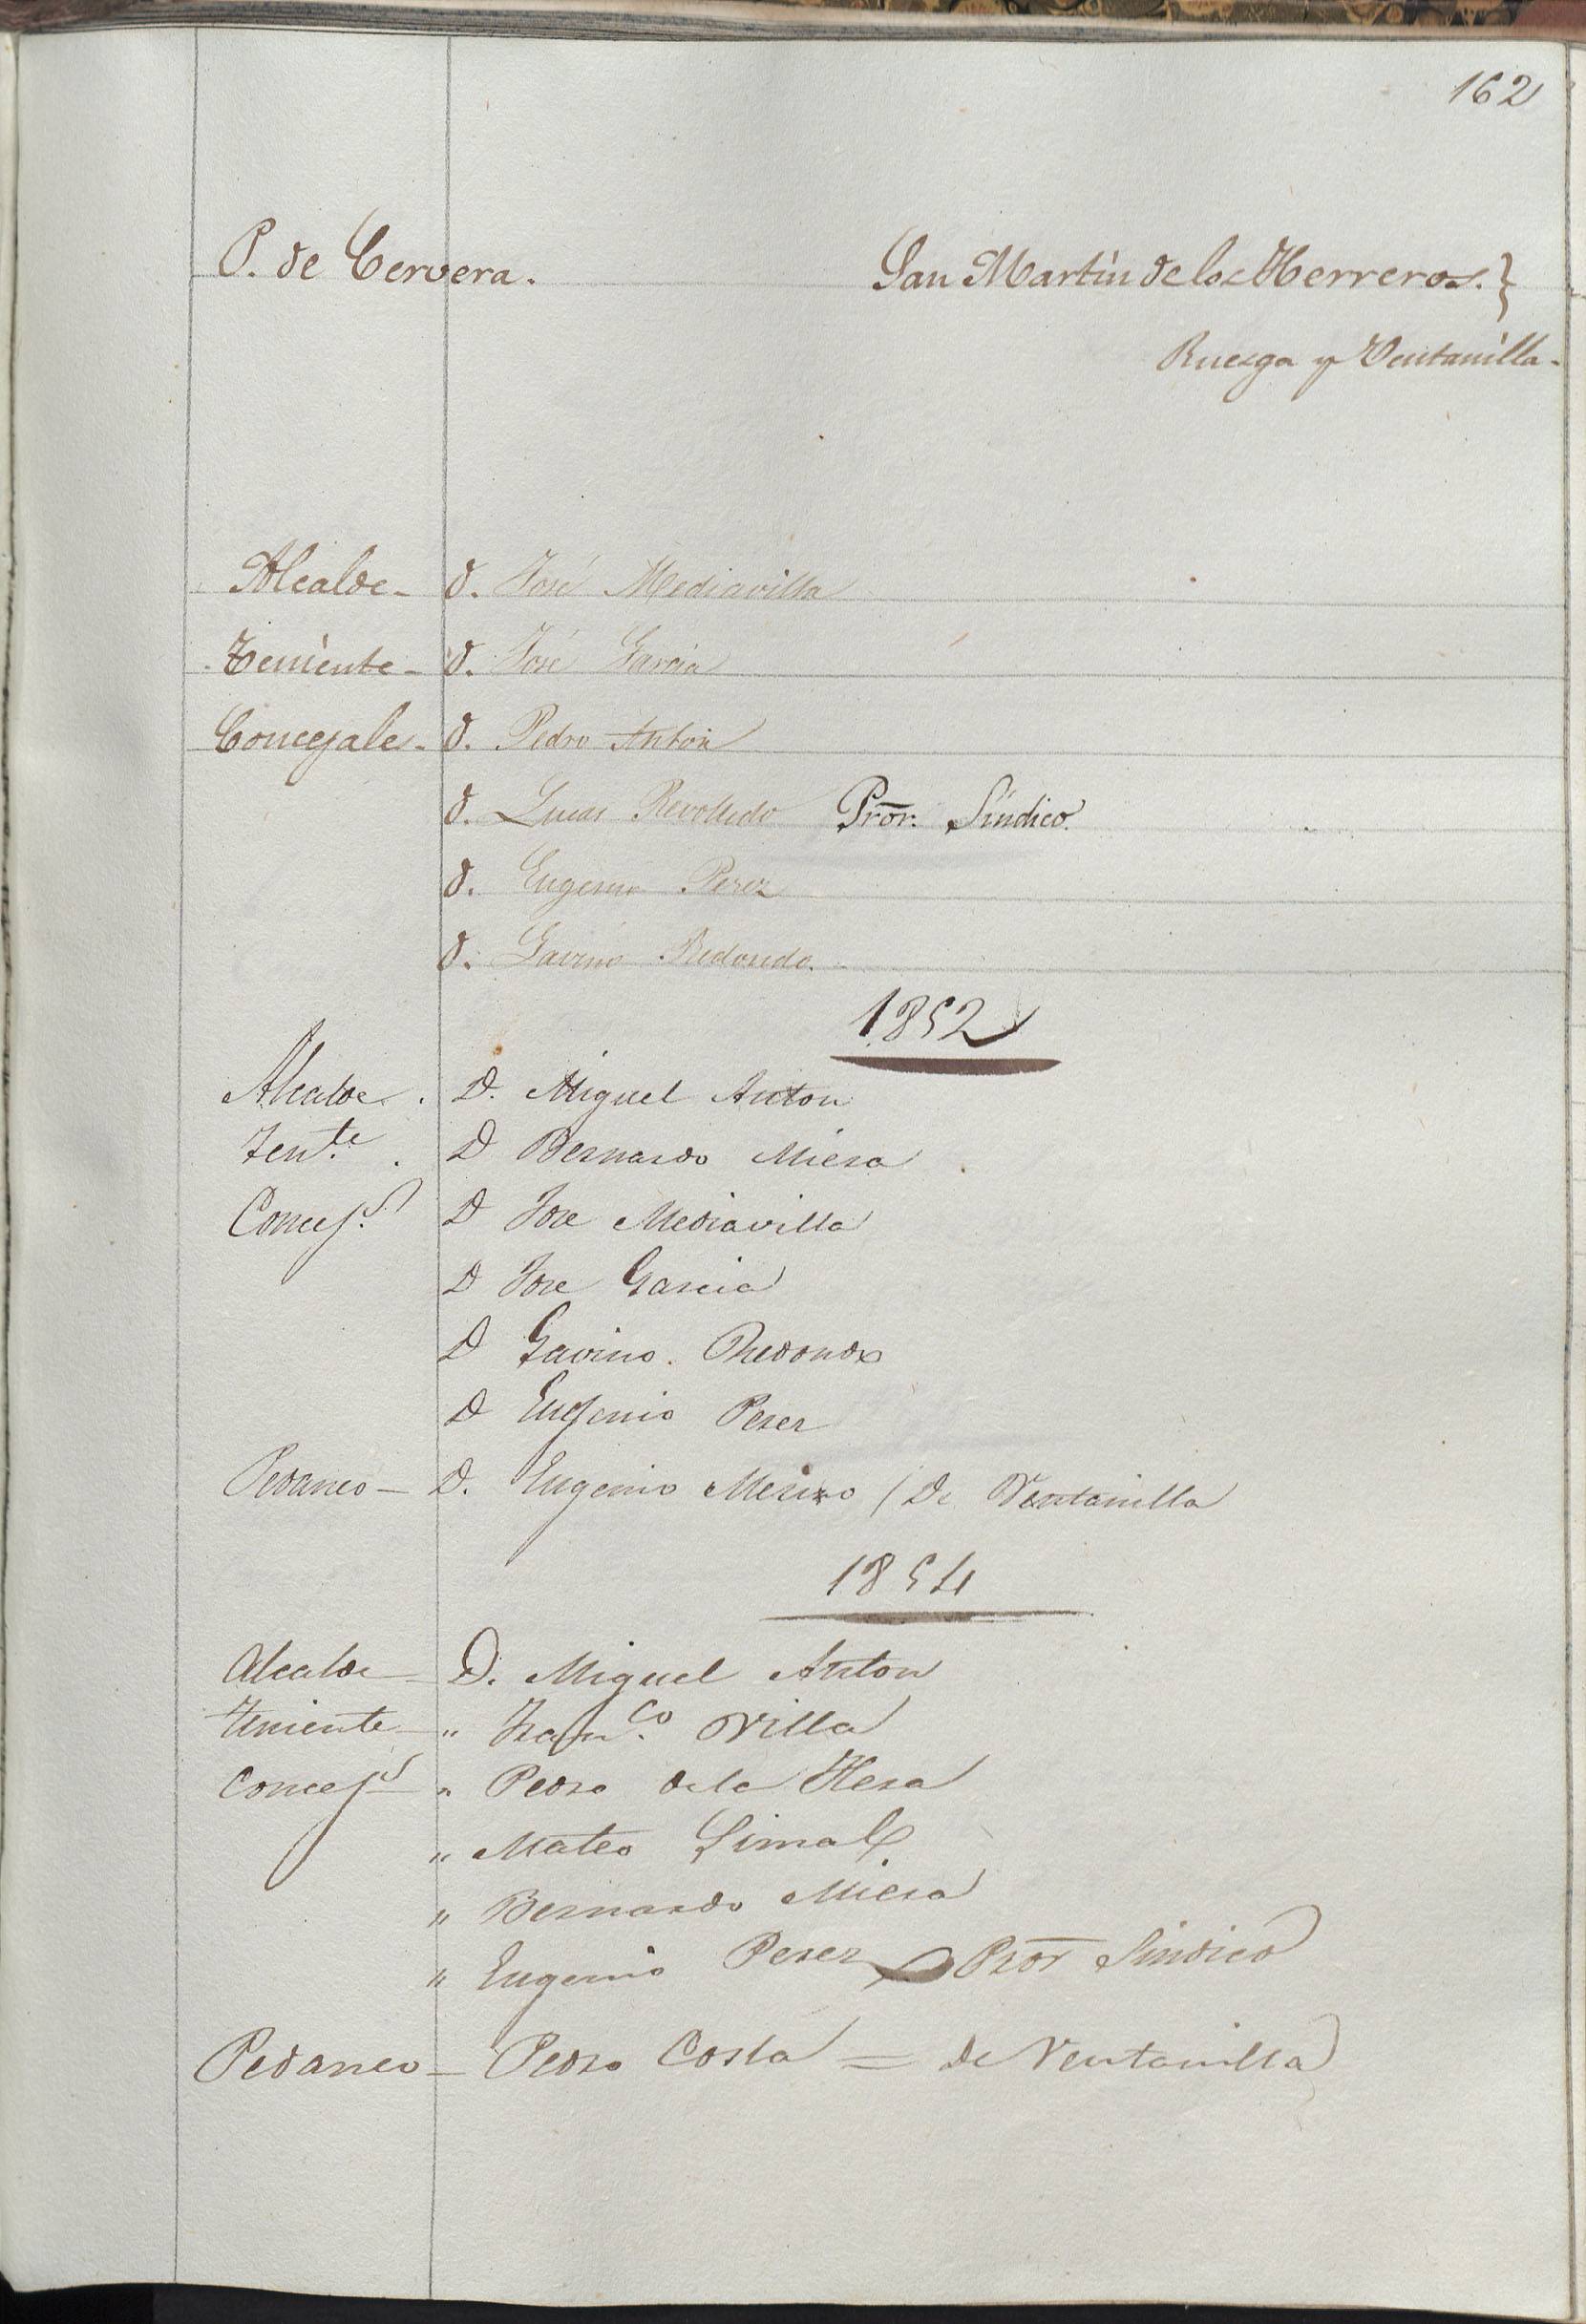 162
P. de Cervera. San Martin de los Herreros. }
Ruesga y Ventanilla.
Alcalde - D. José Mediavilla
Teniente - D. José Garcia
Concejales - D. Pedro Anton
D. Lucas Revolledo Pror. Síndico.
D. Eugenio Perez
D. Gavino Redondo.
1852
Alcalde . D. Miguel Anton
Tente . D Bernardo Miera
Concejs. D Jose Mediavilla
D Jose Garcia
D Gavino . Redondo
D Eugenio Perez
Pedaneo - D. Eugenio / De Ventanilla
1854
Alcalde - D. Miguel Anton
Teniente - " Franco. Villa
Concejs " Pedro de la Hera
" Mateo Simal
" Bernardo Miera
" Eugenio Perez Pror Sindico
Pedaneo - Pedro Costa = de Ventanilla